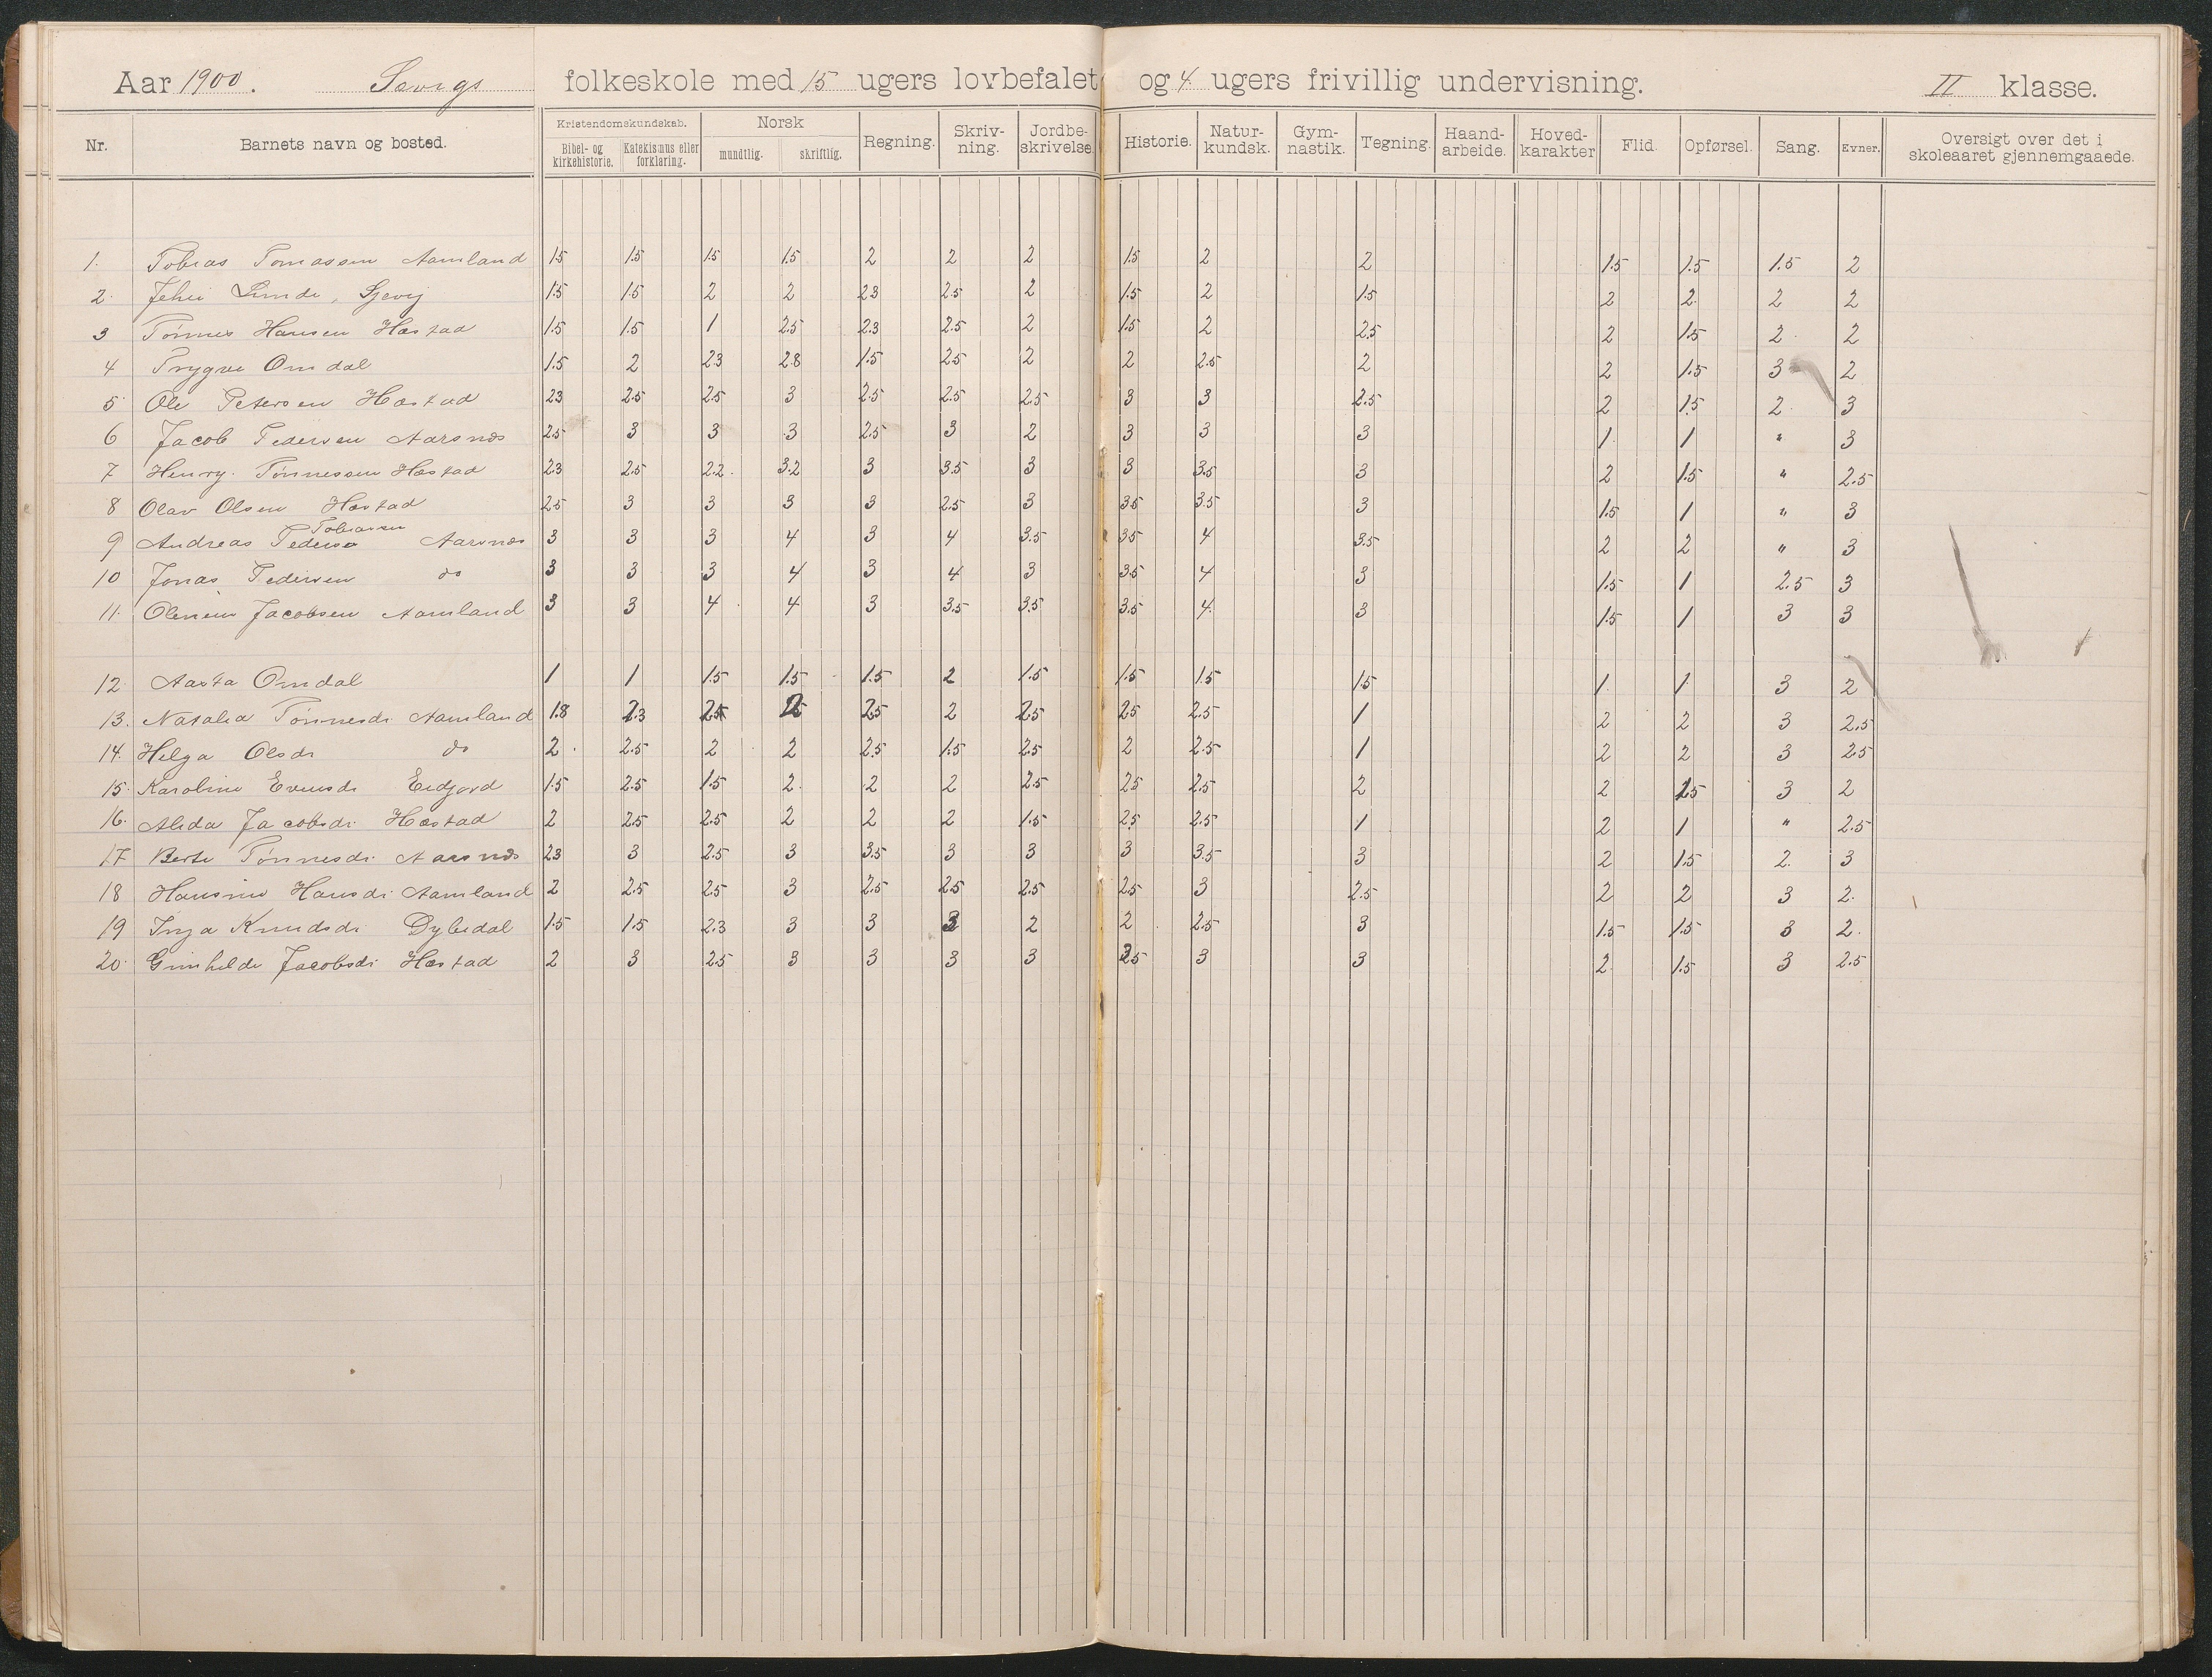 Aar 1900. Sævigs folkeskole med 15 ugers lovbefalet og 4 ugers frivillig undervisning. II klasse.
Nr. Barnets navn og bosted. Kristendomskundskab. Bibel- og kirkehistorie. Katekismus eller forklaring. Norsk mundtlig. skriftlig. Regning. Skriv-ning. Jordbe-skrivelse. Historie. Natur-kundsk. Gym-nastik. Tegning. Haand-arbeide. Hoved-karakter Flid. Opførsel. Sang. Evner. Oversigt over det i skoleaaret gjennemgaaede.
1. Tobias Tomassen Aamland 1.5 1.5 1.5 1.5 2 2 2 1.5 2 2 1.5 1.5 1.5 2
2. Lunde, Gjevig 1.5 1.5 2 2 2.3 2.5 2 1.5 2 1.5 2 2. 2 2
3 Tønnes Hansen Hæstad 1.5 1.5 1 2.5 2.3 2.5 2 1.5 2 2.5 2 1.5 2. 2
4 Trygve Omdal 1.5 2 2.3 2.8 1.5 2.5 2 2 2.5 2 2 1.5 3 2
5 Ole Petersen Hæstad 2.3 2.5 2.5 3 2.5 2.5 2.5 3 3 2.5 2 1.5 2. 3
6 Jacob Pedersen Aarsnæs 2.5 3 3 3 2.5 3 2 3 3 3 1. 1 " 3
7 Henry. Tønnessen Hæstad 2.3 2.5 2.2. 3.2 3 3.5 3 3 3.5 3 2 1.5 " 2.5
8 Olav Olsen Hæstad 2.5 3 3 3 3 2.5 3 3.5 3.5 3 1.5 1 " 3
Tobiassen
9 Andreas Pederse Aarsnæs 3 3 3 4 3 4 3.5 3.5 4 3.5 2 2 " 3
10 Jonas Pedersen do 3 3 3 4 3 4 3 3.5 4 3 1.5 1 2.5 3
11. Jacobsen Aamland 3 3 4 4 3 3.5 3.5 3.5 4. 3 1.5 1 3 3
12. Aasta Omdal 1 1 1.5 1.5 1.5 2 1.5 1.5 1.5 1.5 1. 1. 3 2
13. Natalia Tønnesdr. Aamland 1.8 2.3 2.5 2 2.5 2 2.5 2.5 2.5 1 2 2 3 2.5
14. Helga Olsdr do 2. 2.5 2 2 2.5 1.5 2.5 2 2.5 1 2 2 3 2.5
15. Karoline Evensdr Eidjord 1.5 2.5 1.5 2. 2 2 2.5 2.5 2.5 2 2 1.5 3 2
16. Alida Jacobsdr. Hæstad 2 2.5 2.5 2 2 2 1.5 2.5 2.5 1 2 1 " 2.5
17 Berte Tønnesdr. Aarsnæs 2.3 3 2.5 3 3.5 3 3 3 3.5 3 2 1.5 2. 3
18 Hansine Hansdr. Aamland 2 2.5 2.5 3 2.5 2.5 2.5 2.5 3 2.5 2 2 3 2.
19 Inga Knudsdr. Dybedal 1.5 1.5 2.3 3 3 3 2 2 2.5 3 1.5 1.5 3 2.
20. Gunhilde Jacobsdr Hæstad 2 3 2.5 3 3 3 3 3.5 3 3 2. 1.5 3 2.5